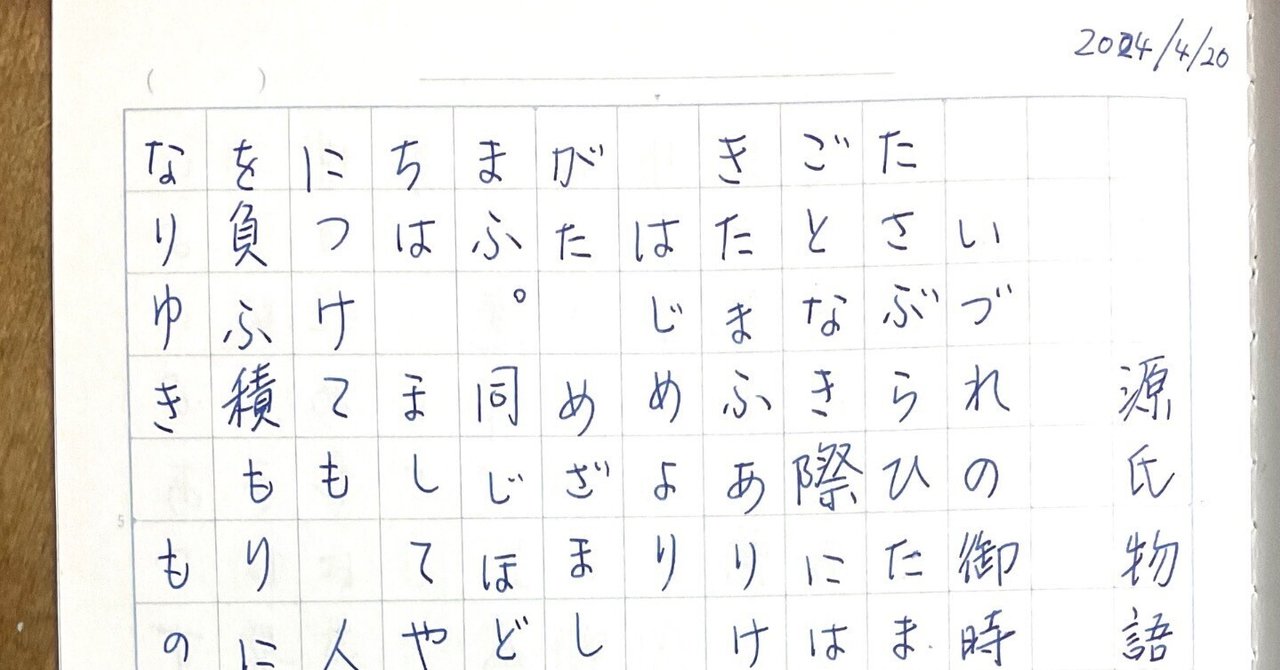 2024/4/20
(　　)
源氏物語
いづれの御時
たさぶらひたま
ごとなき際には
きたまふありけ
はじめより
がた　めざまし
まふ。同じほど
ちは　ましてや
につけても　人
を負ふ積もりに
なりゆき　もの
5